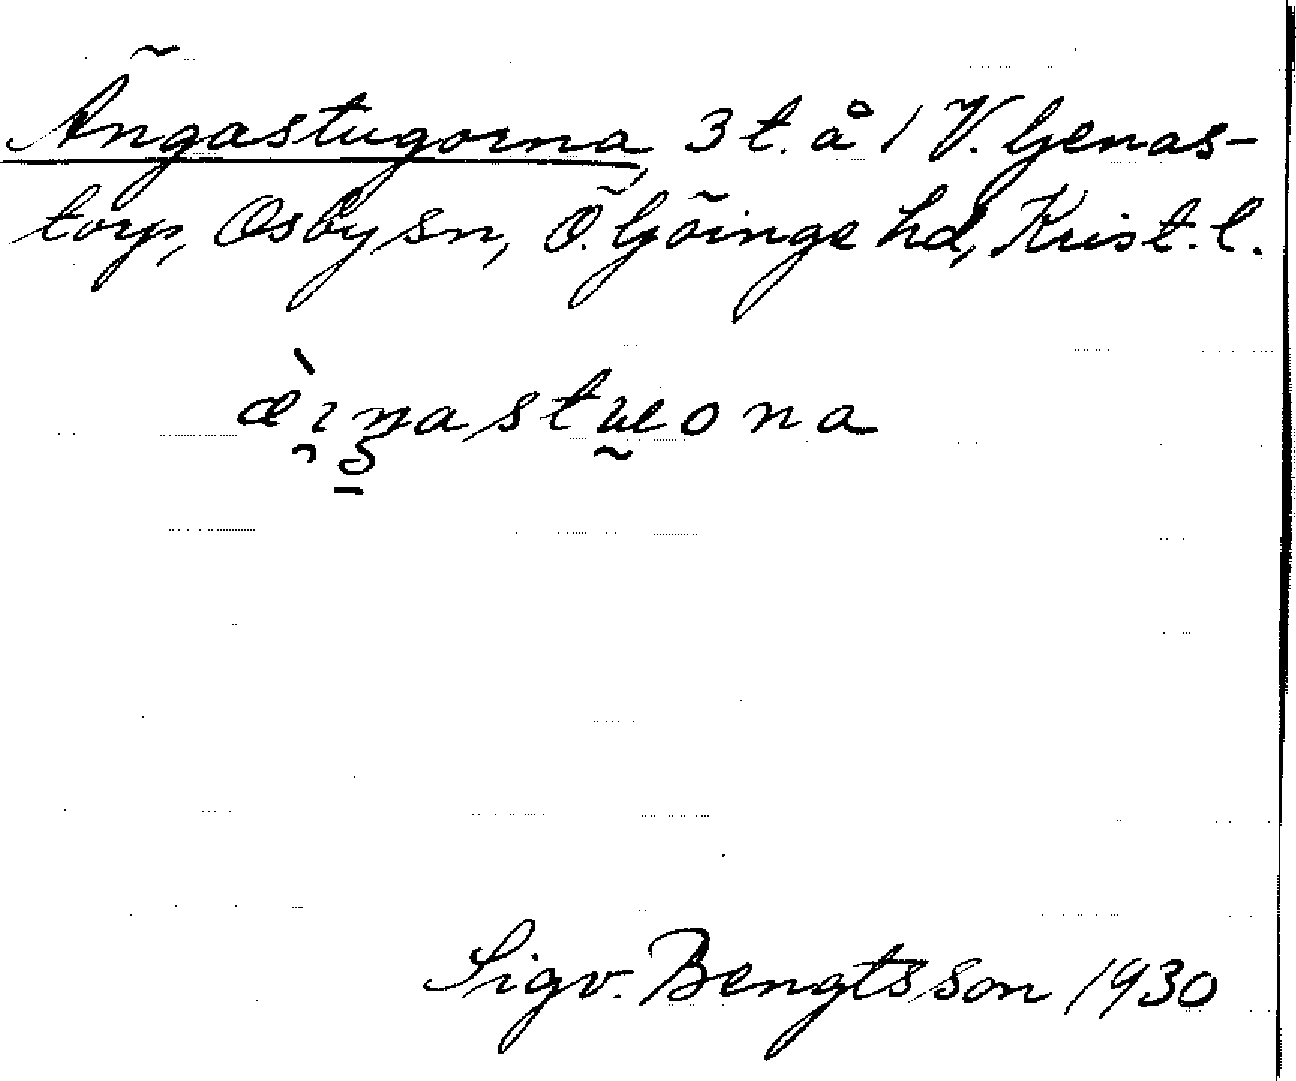 Ängastugorna, 3 t. å 1 V. Genas-
torp, Osby sn, Ö. Göinge hd, Krist. l.
Sigv. Bengtsson 1930